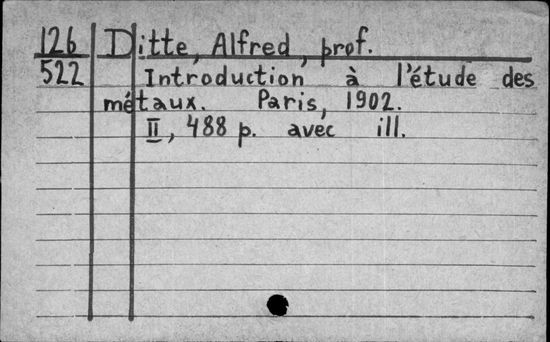 126 Ditte, Alfred, prof.
522 Introduction à l'étude des
métaux. Paris, 1902.
II, 488 p. avec ill.